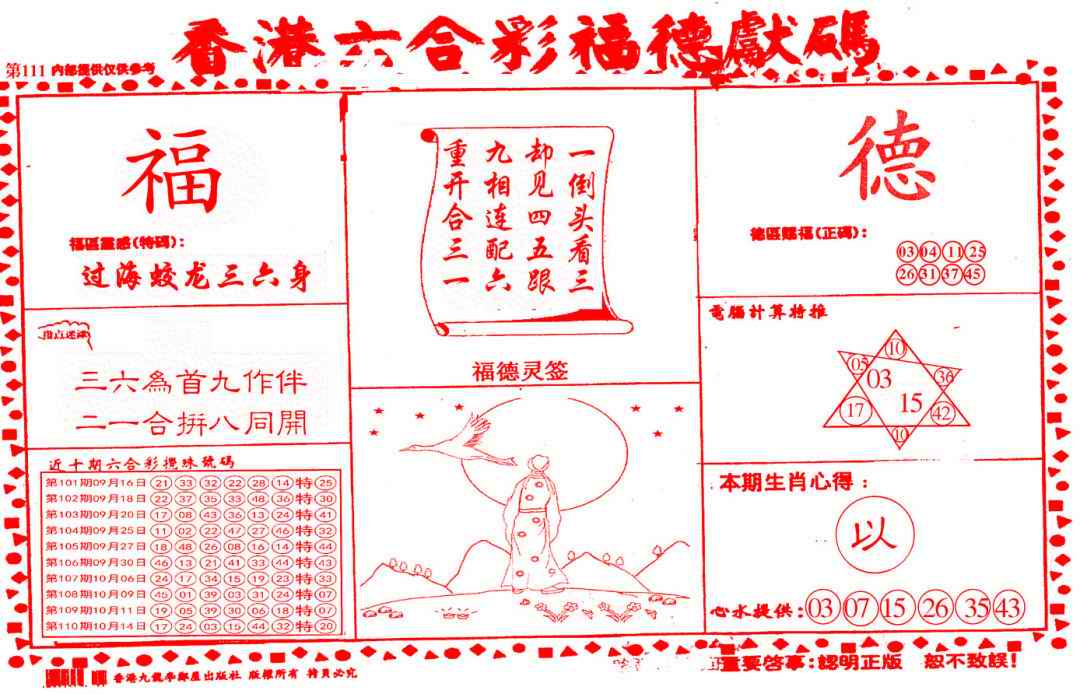 香港六合彩福德獻碼
第111 内部提供仅供参考
福
福區靈感(特碼):
过海蛟龙三六身
指点迷津
三六為首九作伴
二一合拼八同開
近十期六合彩攪珠號碼
第101期09月16日 21 33 32 22 28 14 特 25
第102期09月18日 22 37 35 33 48 36 特 30
第103期09月20日 17 08 43 36 13 24 特 41
第104期09月25日 11 02 22 47 27 46 特 32
第105期09月27日 18 48 26 08 16 14 特 44
第106期09月30日 46 13 21 41 33 44 特 43
第107期10月06日 24 17 34 15 19 23 特 33
第108期10月09日 45 01 39 03 31 24 特 07
第109期10月11日 19 05 39 30 06 18 特 07
第110期10月14日 17 24 03 15 44 32 特 20
一倒头看三
却见四五跟
九相连配六
重开合三一
福德灵签
德
德區賜福(正碼):
03 04 11 25
26 31 37 45
電腦計算特推
10
05 03 36
17 15 42
10
本期生肖心得:
以
心水提供: 03 07 15 26 35 43
重要啓事:認明正版 恕不致誤!
香港九龍學鄰屋出版社 版權所有 特員必究